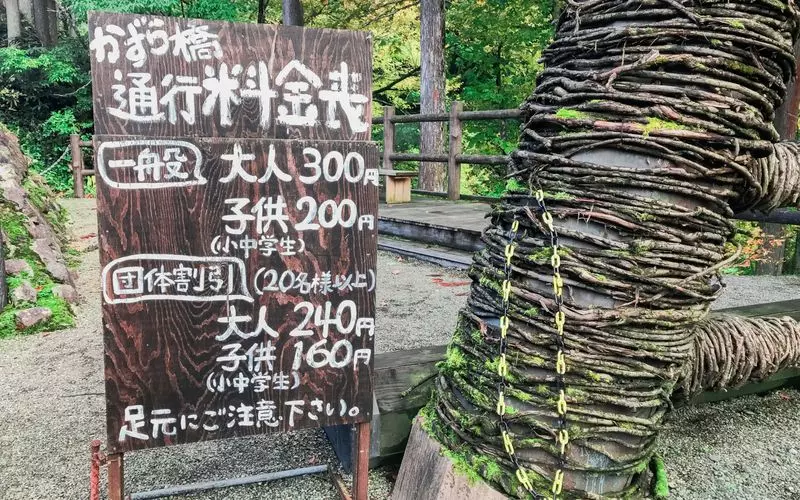 かずら橋
通行料金表
一般 大人 300円
子供 200円
(小中学生)
団体割引 (20名様以上)
大人 240円
子供 160円
(小中学生)
足元にご注意下さい。